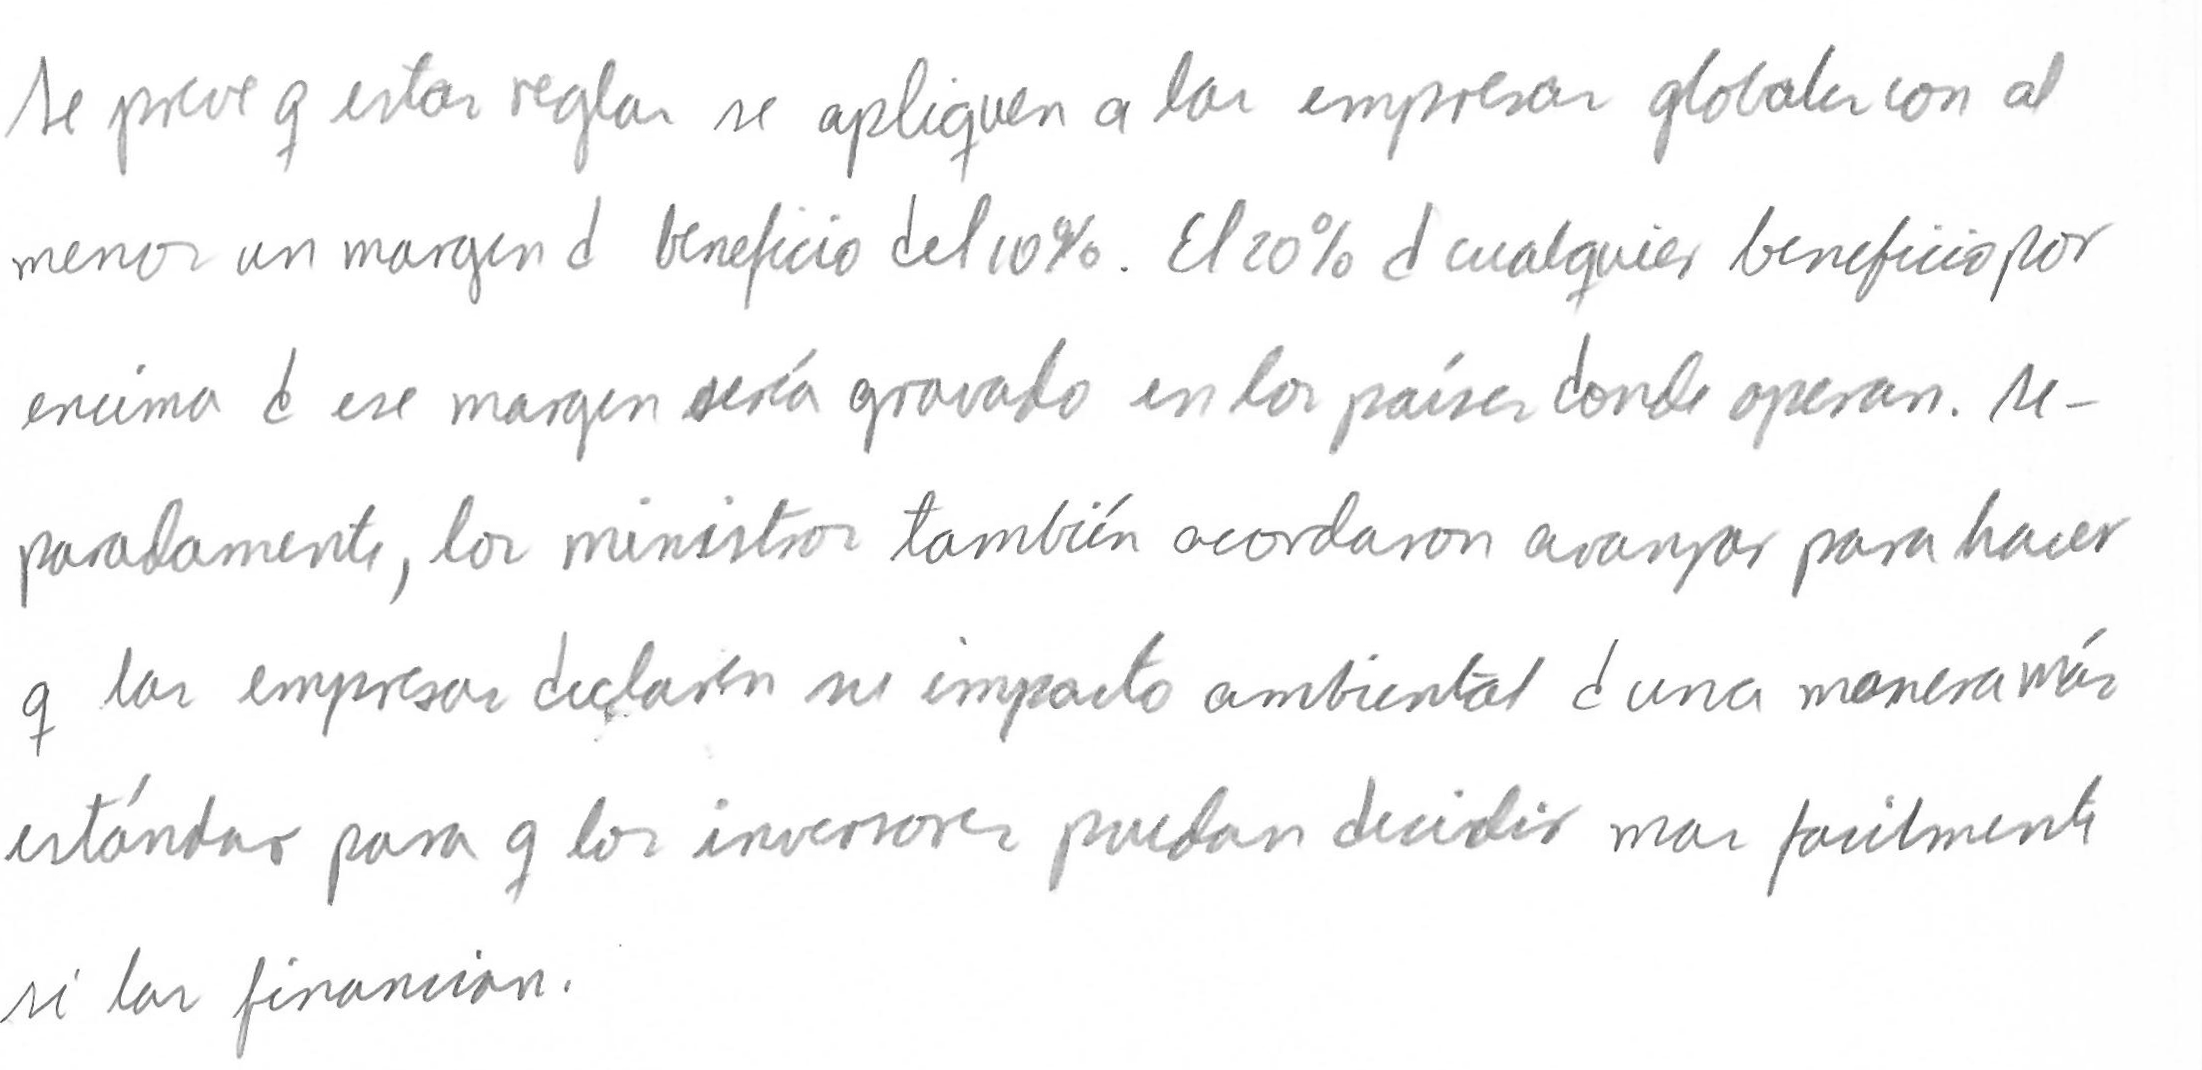 Se preve q estas reglas se apliquen a las empresas globales con al
menos un margen d beneficio del 10%. El 20% d cualquier beneficio por
encima d ese margen sería gravado en los países donde operan. Se-
paradamente, los ministros también acordaron avanzar para hacer
q las empresas declaren su impacto ambiental d una manera más
estándar para q los inversores puedan decidir mas facilmente
si las financian.